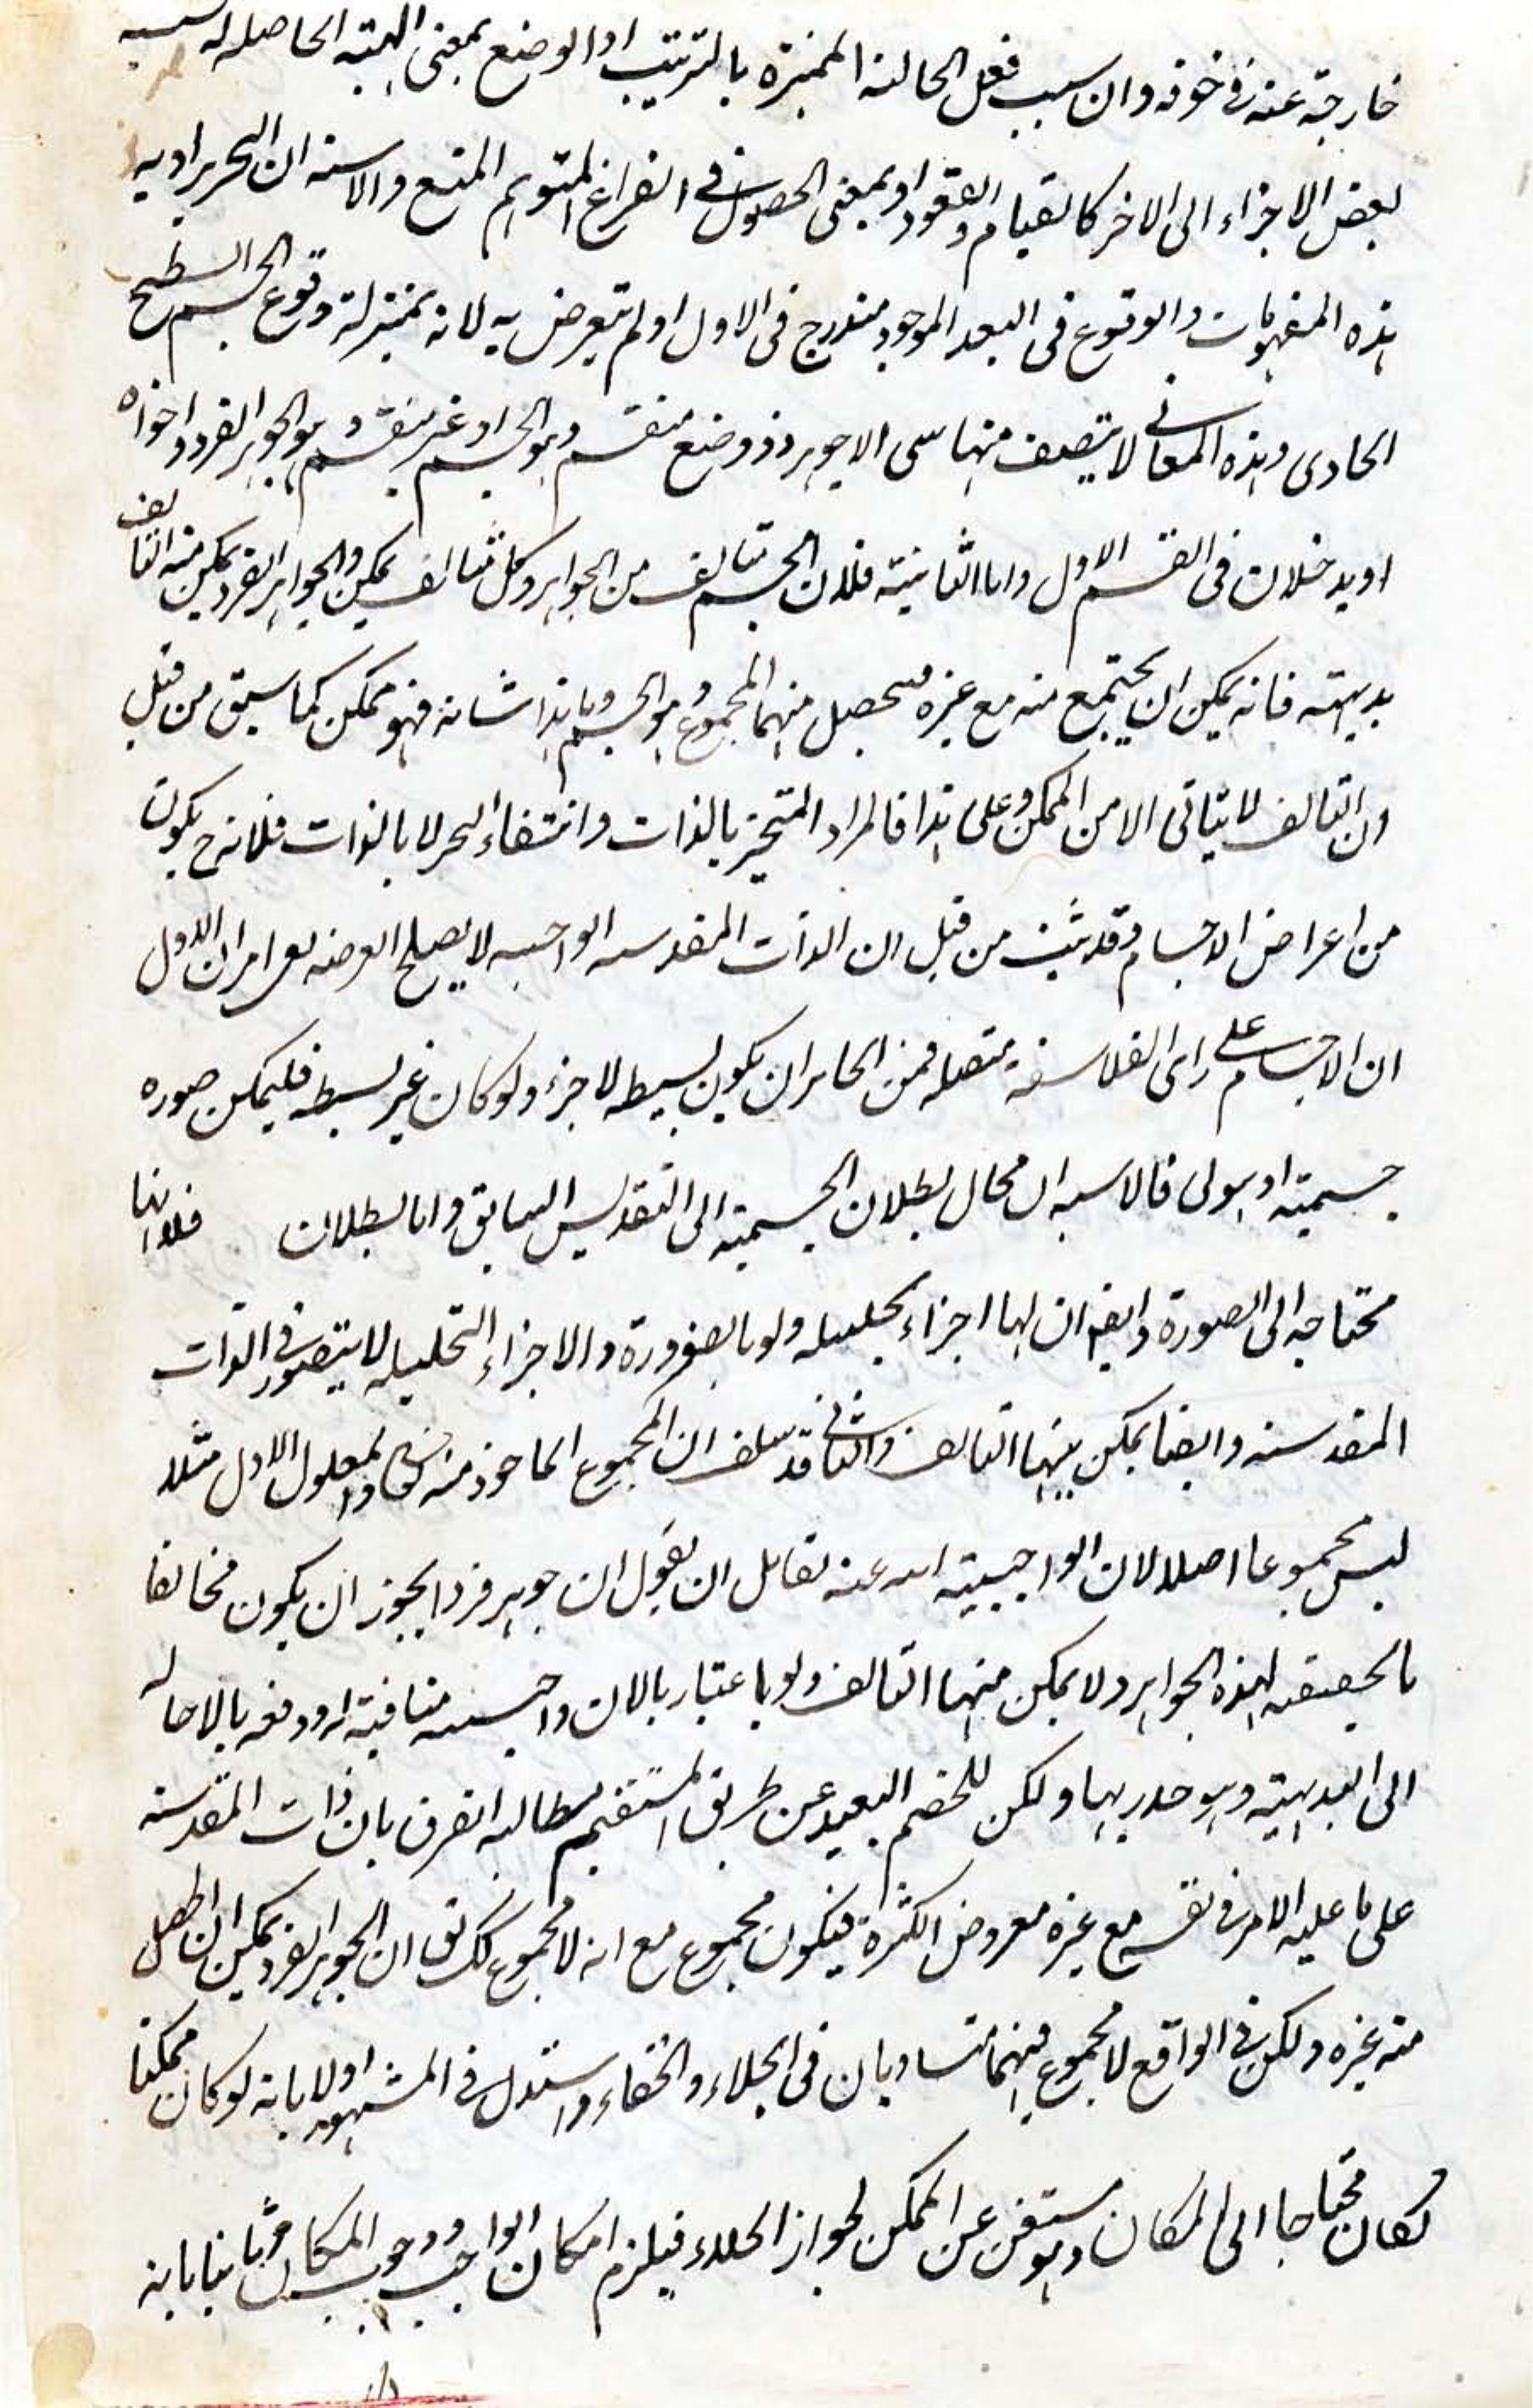 خارجة عنه في خوفه وان سبب فعل الحالة المميزة بالترتيب او الوضع بمعنى الهيئة الحاصله له
بعض الاجزاء الى الاخر كالقيام والقعود او بمعنى الحصول في الفراغ المتوهم الممتع والاسنه ان التحرير اريد به
هذه المفهومات والوقوع في البعد الموجود مندرج في الاول او لم يتعرض به لانه بمنزلة وقوع الجسم السطح
الحاوى وهذه المعاني لا يتصف منها سى الا جوهر ذو وضع منقسم وهو الجسم او غير منقسم وهو الجوهر الفرد واخواه
او يدخلان في القسم الاول واما الثانية فلان الجسم يتالف من الجواهر وكل متالف ممكن والجواهر الفرد يمكن منه التالف
بديهته فانه يمكن ان يجتمع منه مع غيره فيحصل منهما المجموع وهو الجسم وما هذا شانه فهو ممكن كما سبق من قبل
ان التالف لا يتاتى الا من الممكن وعلى هذا فالمراد المتحيز بالذات وانتفاء التحيز لا بالذات فلانه ح يكون
من اعراض الاجسام وقد ثبت من قبل ان الذات المقدسه الواجبه لا يصلح العرضه امران الاول
ان الاجسام على راى الفلاسفة متصله فمن الجايز ان يكون بسيطه لا جزء ولو كان غير بسيطه فليكن صوره
جسمية او هيولى فالاسبه ان محال بطلان الجسمية الى التقديس السابق واما بطلان فلانها
محتاجه الى الصورة وايضا ان لها اجزاء تحليليه ولو بالضرورة والاجزاء التحليليه لا يتصور في الذات
المقدسة وايضا يمكن بينها التالف والثاني قد سلف ان المجموع الماخوذ منه تعالى والمعلول الاول مثلا
ليس مجموعا اصلا لان الواجبية عنه لقائل ان يقول ان جوهر فردا يجوز ان يكون مخالفا
بالحقيقه لهذه الجواهر ولا يمكن منها التالف ولو باعتبار منافية له ودفعه بالاحاله
الى البديهية وهو جدير بها ولكن للخصم البعيد عن طريق المستقيم مطالبه الفرق بان ذات المقدسة
على ما عليه الامر في نفسه مع غيره معروض الكثرة فيكون مجموع مع انه لا مجموع كك نق ان الجوهر الفرد يمكن ان
منه غيره ولكن في الواقع لا مجموع فهما متساويان في الجلاء والخفاء واستدل في المشهور اولا بانه لو كان ممكنا
لكان محتاجا الى المكان وهو مستغن عن الممكن لجواز الخلاء فيلزم امكان الواجب ووجوب المكان وثانيا بانه